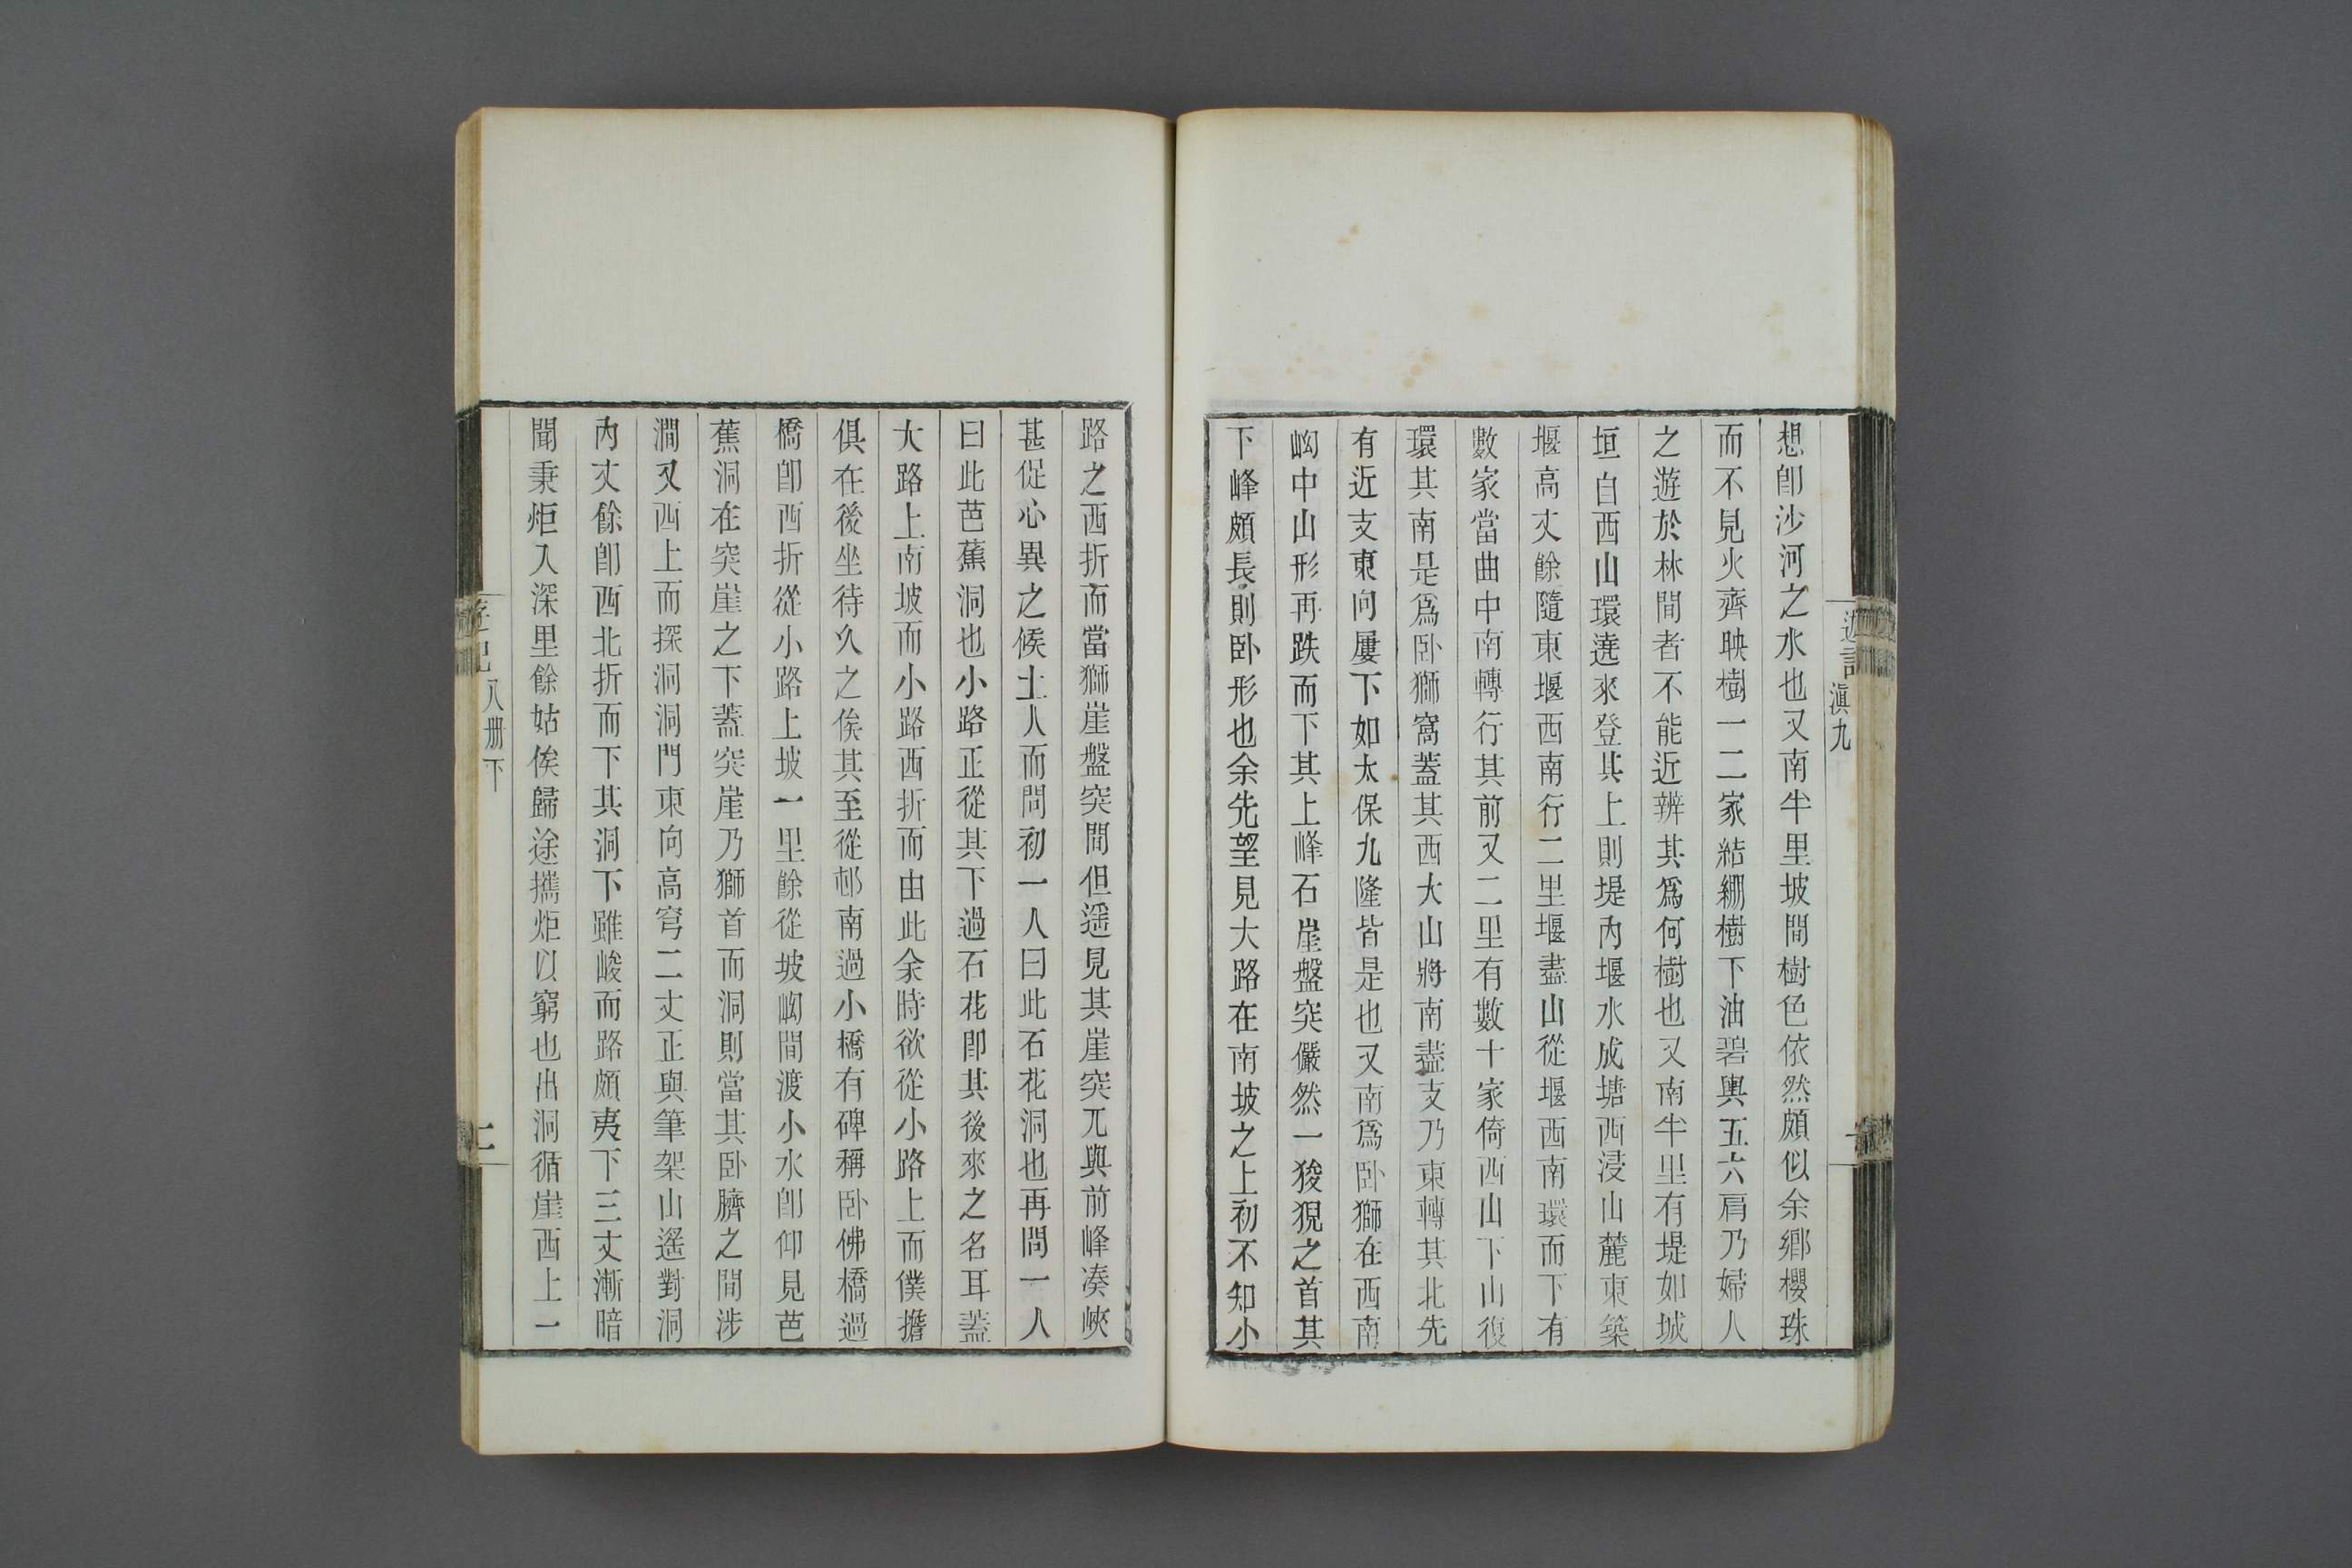 遊記
滇九
想卽沙河之水也又南半里坡間樹色依然頗似余鄉櫻珠
而不見火齊映樹一二家結綳樹下油碧輿五六肩乃婦人
之遊於林間者不能近辨其爲何樹也又南半里有堤如城
垣自西山環遶來登其上則堤內堰水成塘西浸山麓東築
堰高丈餘隨東堰西南行二里堰盡山從堰西南環而下有
數家當曲中南轉行其前又二里有數十家倚西山下山復
環其南是爲卧獅窩蓋其西大山將南盡支乃東轉其北先
有近支東向屢下如太保九隆皆是也又南爲卧獅在西南
㘭中山形再跌而下其上峰石崖盤突儼然一狻猊之首其
下峰頗長則卧形也余先望見大路在南坡之上初不知小
路之西折而當獅崖盤突間但遥見其崖突兀與前峰湊峽
甚促心異之候土人而問初一人曰此石花洞也再問一人
曰此芭蕉洞也小路正從其下過石花卽其後來之名耳蓋
大路上南坡而小路西折而由此余時欲從小路上而僕擔
俱在後坐待久之俟其至從邨南過小橋有碑稱卧佛橋過
橋卽西折從小路上坡一里餘從坡㘭間渡小水卽仰見芭
蕉洞在突崖之下蓋突崖乃獅首而洞則當其卧臍之間涉
澗又西上而探洞洞門東向高穹二丈正與筆架山遙對洞
內丈餘卽西北折而下其洞下雖峻而路頗夷下三丈漸暗
聞秉炬入深里餘姑俟歸途攜炬以窮也出洞循崖西上一
遊記
八册下